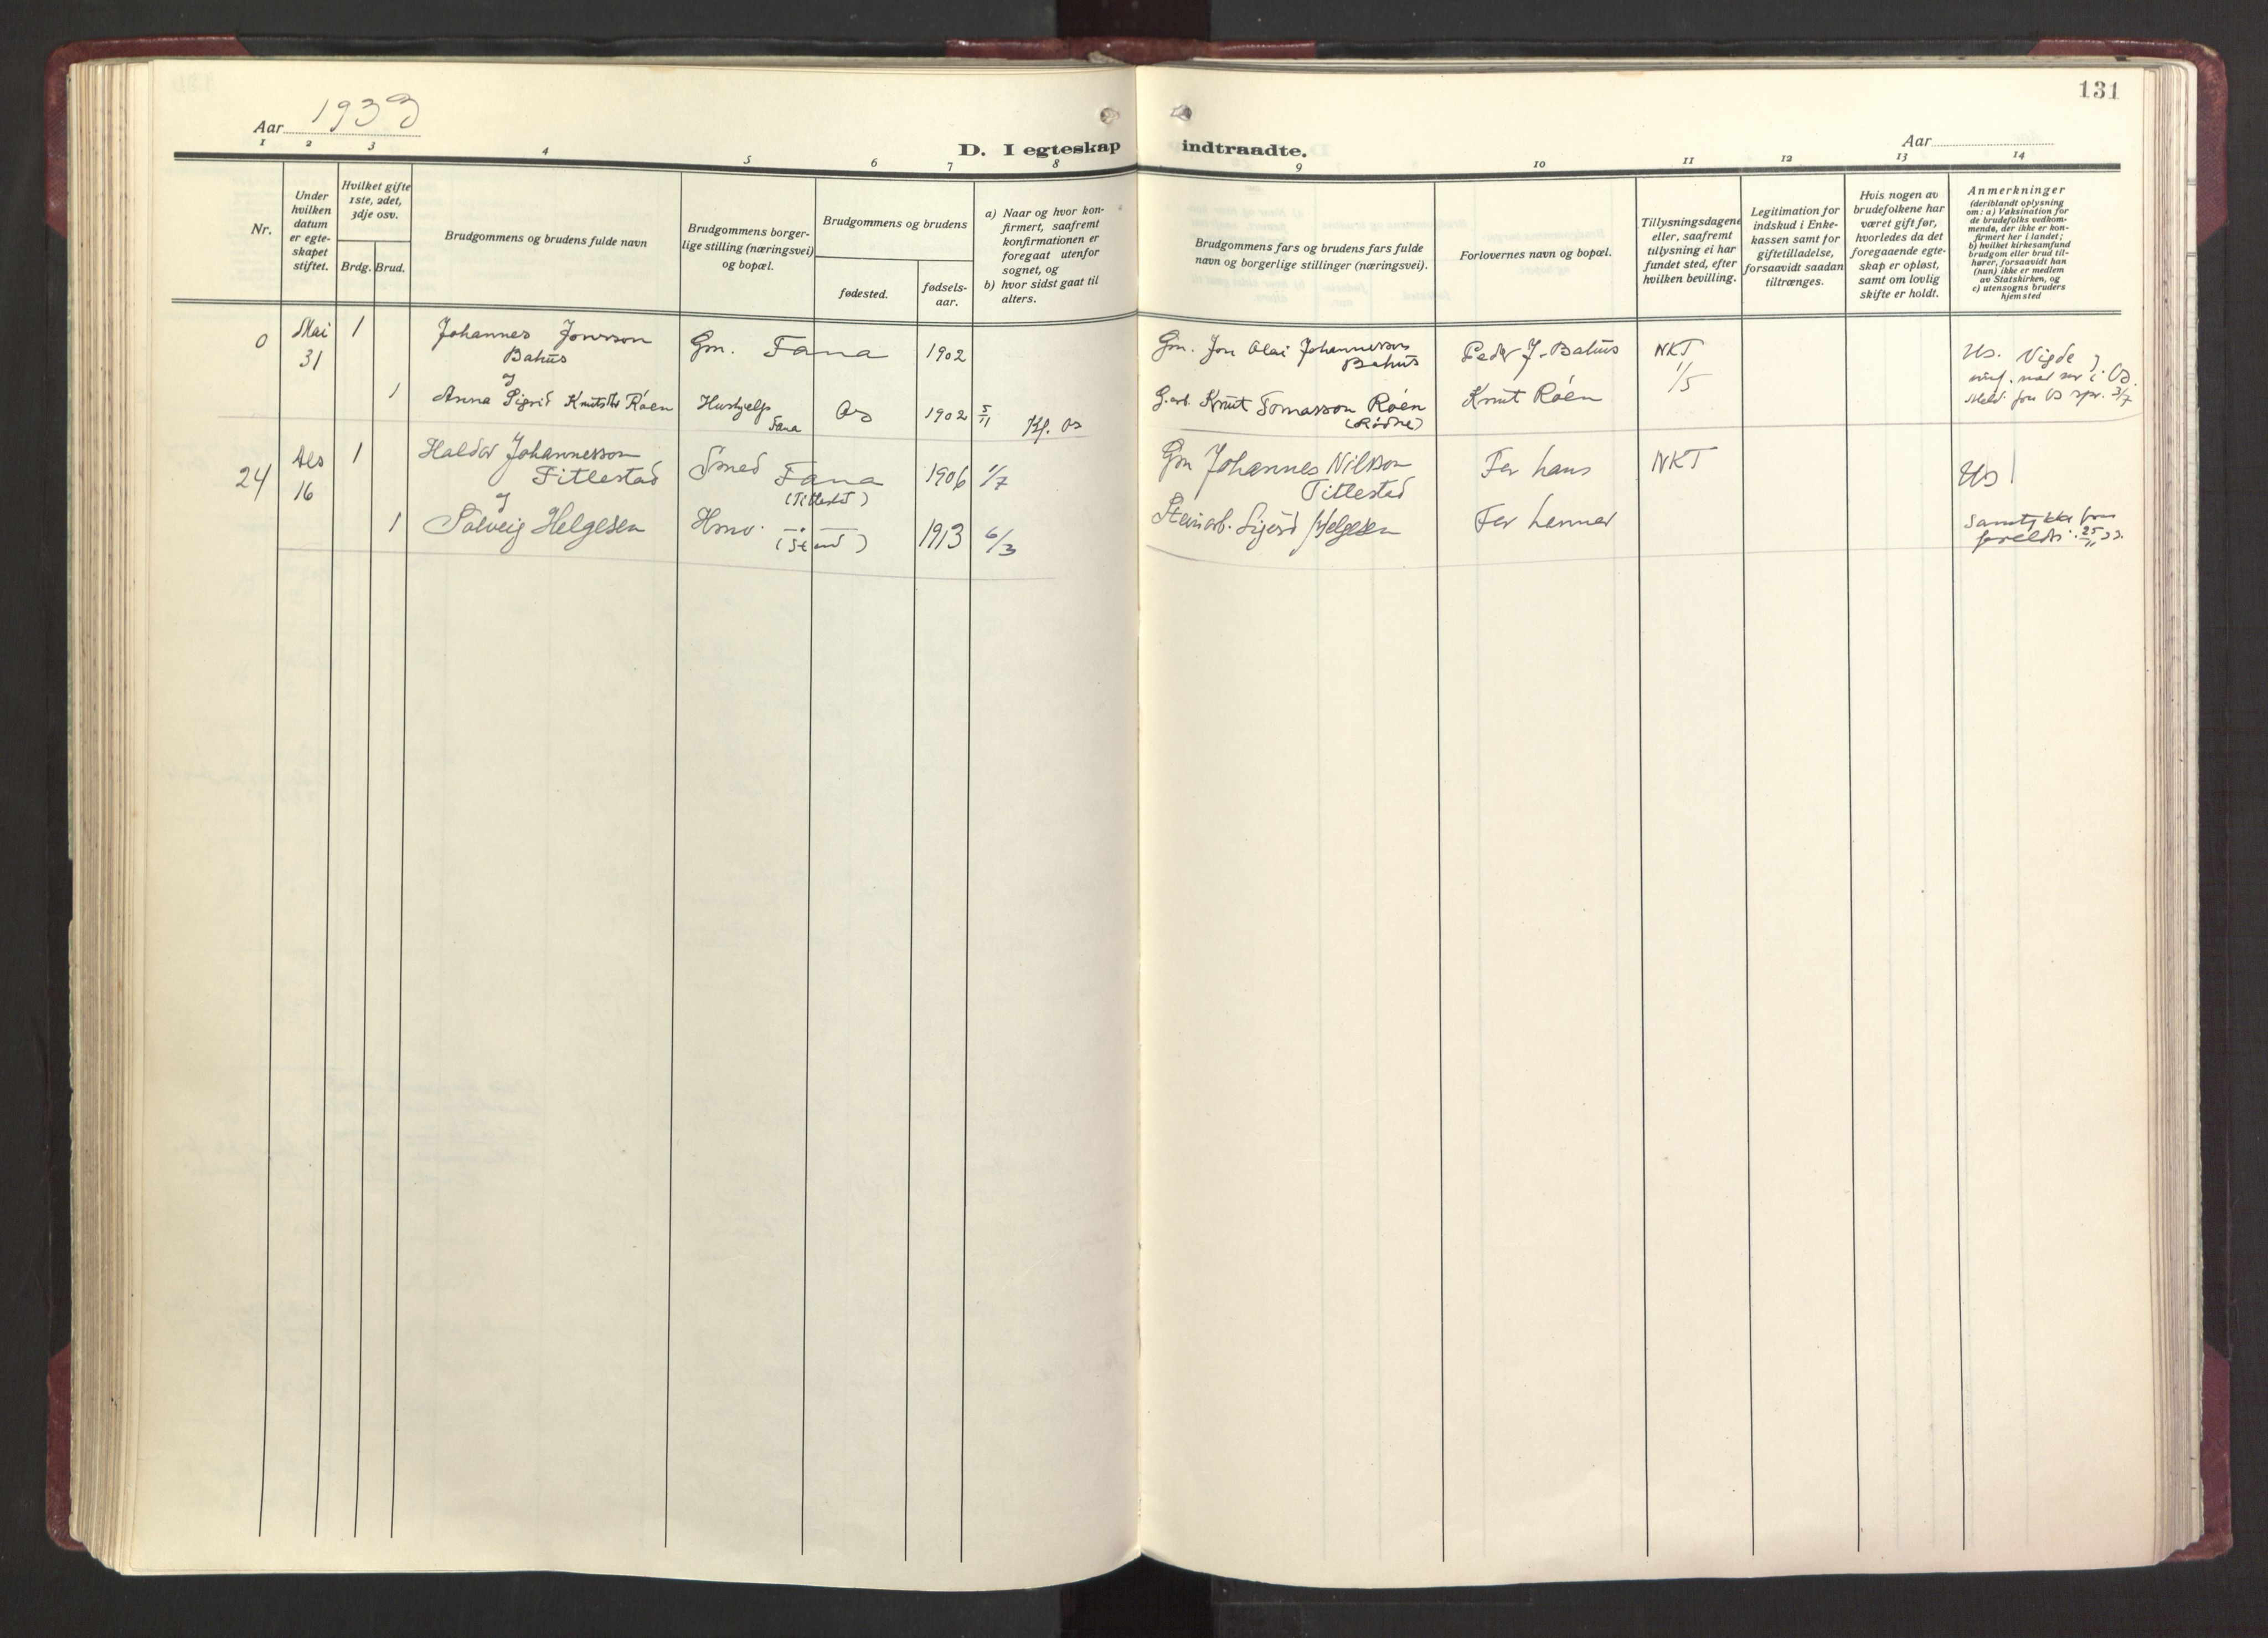 131
Aar 1933
Aar
D. I egteskap indtraadte.
1 2 3 4 5 6 7 8 9 10 11 12 13 14
Nr.
Under hvilken datum er egte-skapet stiftet.
Hvilket gifte 1ste, 2det, 3dje osv.
Brdg. Brud.
Brudgommens og brudens fulde navn
Brudgommens borger-
lige stilling (næringsvei)
og bopæl.
Brudgommens og brudens
fødested.
fødsels-
aar.
a) Naar og hvor kon-
firmert, saafremt
konfirmationen er
foregaat utenfor
sognet, og
b) hvor sidst gaat til
alters.
Brudgommens fars og brudens fars fulde
navn og borgerlige stillinger (næringsvei).
Forlovernes navn og bopæl.
Tillysningsdagene
eller, saafremt
tillysning ei har
fundet sted, efter
hvilken bevilling.
Legitimation for
indskud i Enke-
kassen samt for
giftetilladelse,
forsaavidt saadan
tiltrænges.
Hvis nogen av
brudefolkene har
været gift før,
hvorledes da det
foregaaende egte-
skap er opløst,
samt om lovlig
skifte er holdt.
Anmerkninger
(deriblandt oplysning
om: a) Vaksination for
de brudefolks vedkom-
mende, der ikke er kon-
firmert her i landet;
b) hvilket kirkesamfund
brudgom eller brud til-
hører, forsaavidt han
(hun) ikke er medlem
av Statskirken, og
c) utensogns bruders
hjemsted
0 Mai 1 Johannes Jonsson Gm. Fana 1902 Gm. Jon Olai Johannesson Peder J. Bahus NKT Us. Vigde
31 Bahus Bahus 1/5
og
1 Anna Sigrid Knutsdtr Røen Hushjelp Os 1902 5/11 Kf. Os G.arb. Knut Tomasson Røen Knut Røen 3/7
Fana (Rødne)
24 Des 1 Haldor Johannesson Smed Fana 1906 1/7 Gm Johannes Nilsson Far hans NKT Us
16 Titlestad (Titlestad) Titlestad
og
1 Solveig Helgesen Hmv. (Stend) 1913 6/3 Steinarb. Sigurd Helgesen Far hennar Samtykke fra
foreldri 25/11 33.